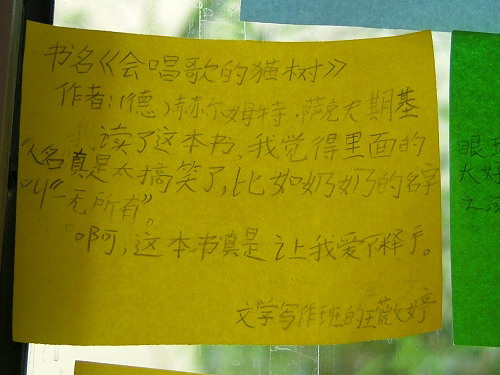 书名《会唱歌的猫树》
作者:(德)赫尔姆特·萨克夫期基
读了这本书,我觉得里面的
人名真是太搞笑了,比如奶奶的名字
叫"一无所有"。
啊,这本书真是让我爱不释手。
文学写作班的汪薇婷
眼
太好